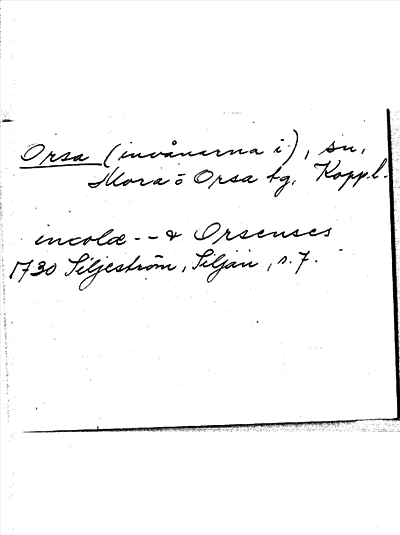 Orsa (invånarna i), sn,
Mora o Orsa tg, Kopp.l.
incolæ -- & Orsenses
1730 Siljeström, Siljan, s. 7.